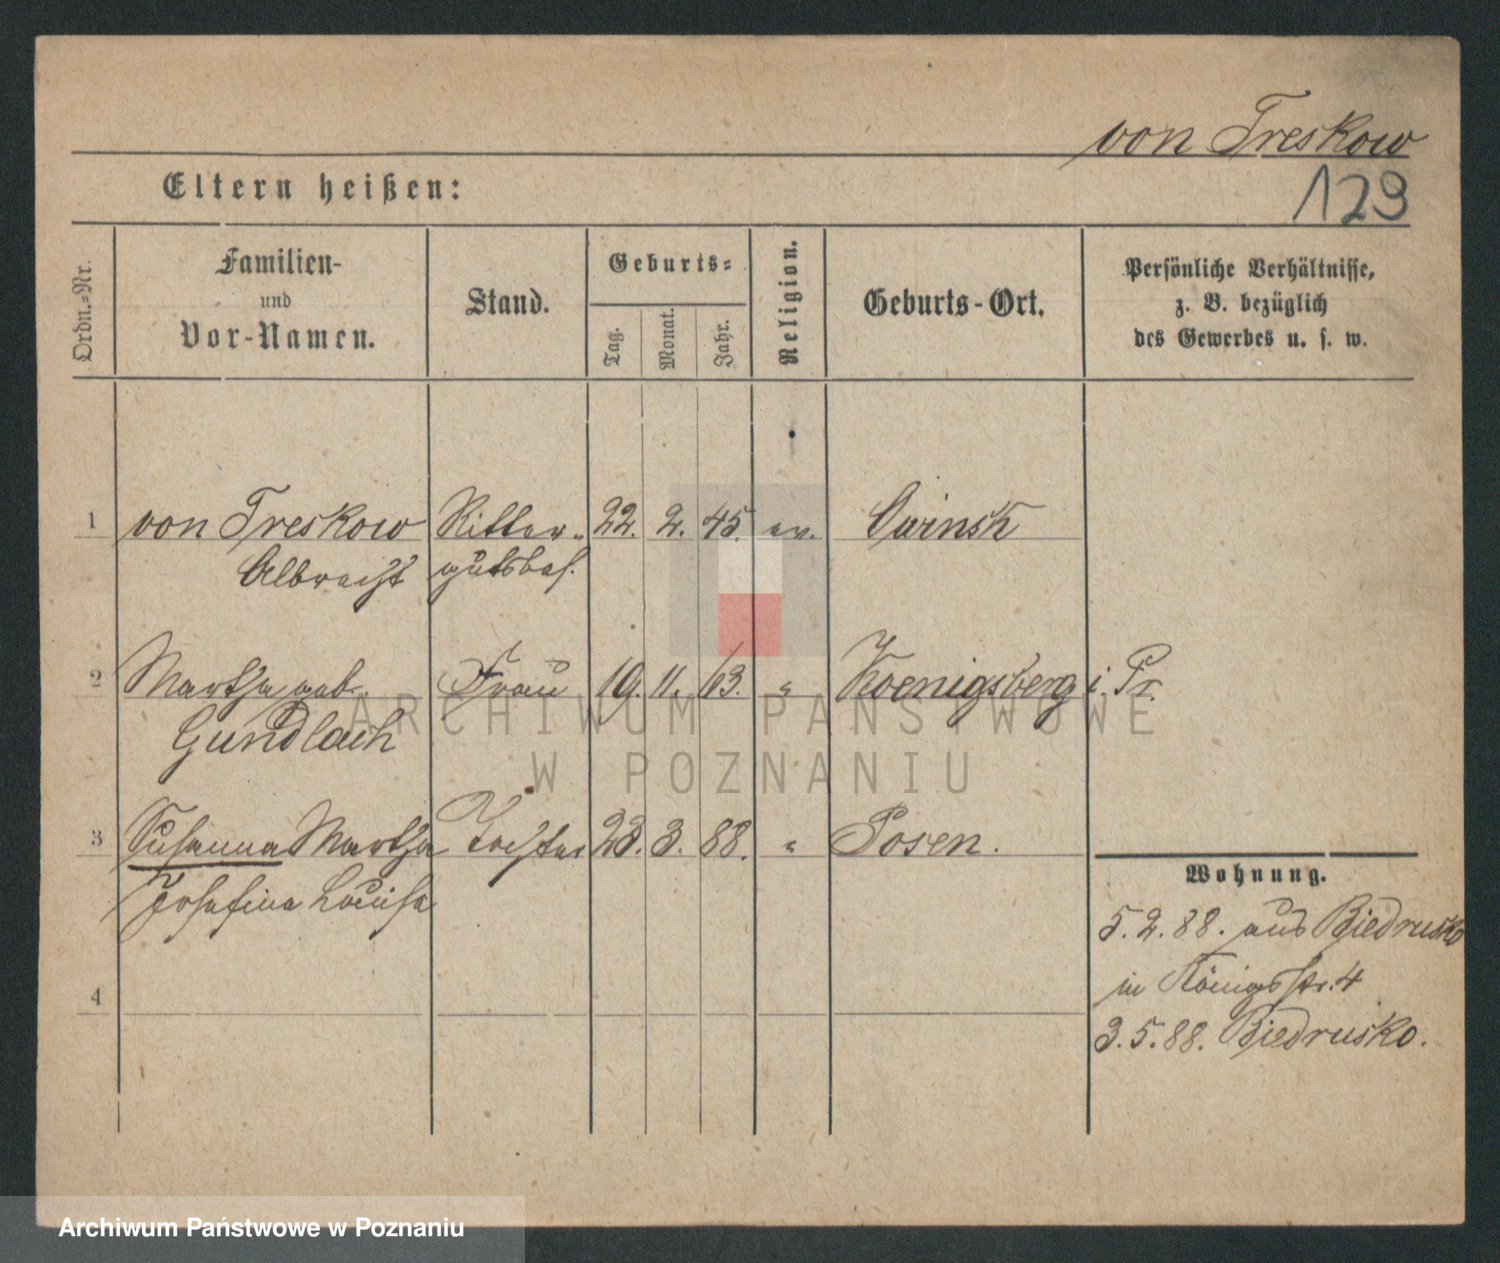 von Treskow
129
Eltern heißen:
Ordn.=Nr.
Familien-
und
Vor-Namen.
Stand.
Geburts=
Tag.
Monat.
Jahr.
Religion.
Geburts-Ort.
Persönliche Verhältnisse,
z. B. bezüglich
des Gewerbes u. s. w.
1 von Treskow Ritter- 22. 2. 45. ev. Owinsk
Albrecht gutsbes.
2 Martha geb. Frau 19. 11. 63. " Koenigsberg i. Pr.
Gundlach
3 Susanna Martha Tochter 23. 3. 88. " Posen.
Josefina Louisa
4
Wohnung.
5. 2. 88. aus Biedrusko
in Königsstr. 4
3. 5. 88. Biedrusko.
ARCHIWUM PAŃSTWOWE
W POZNANIU
Archiwum Państwowe w Poznaniu